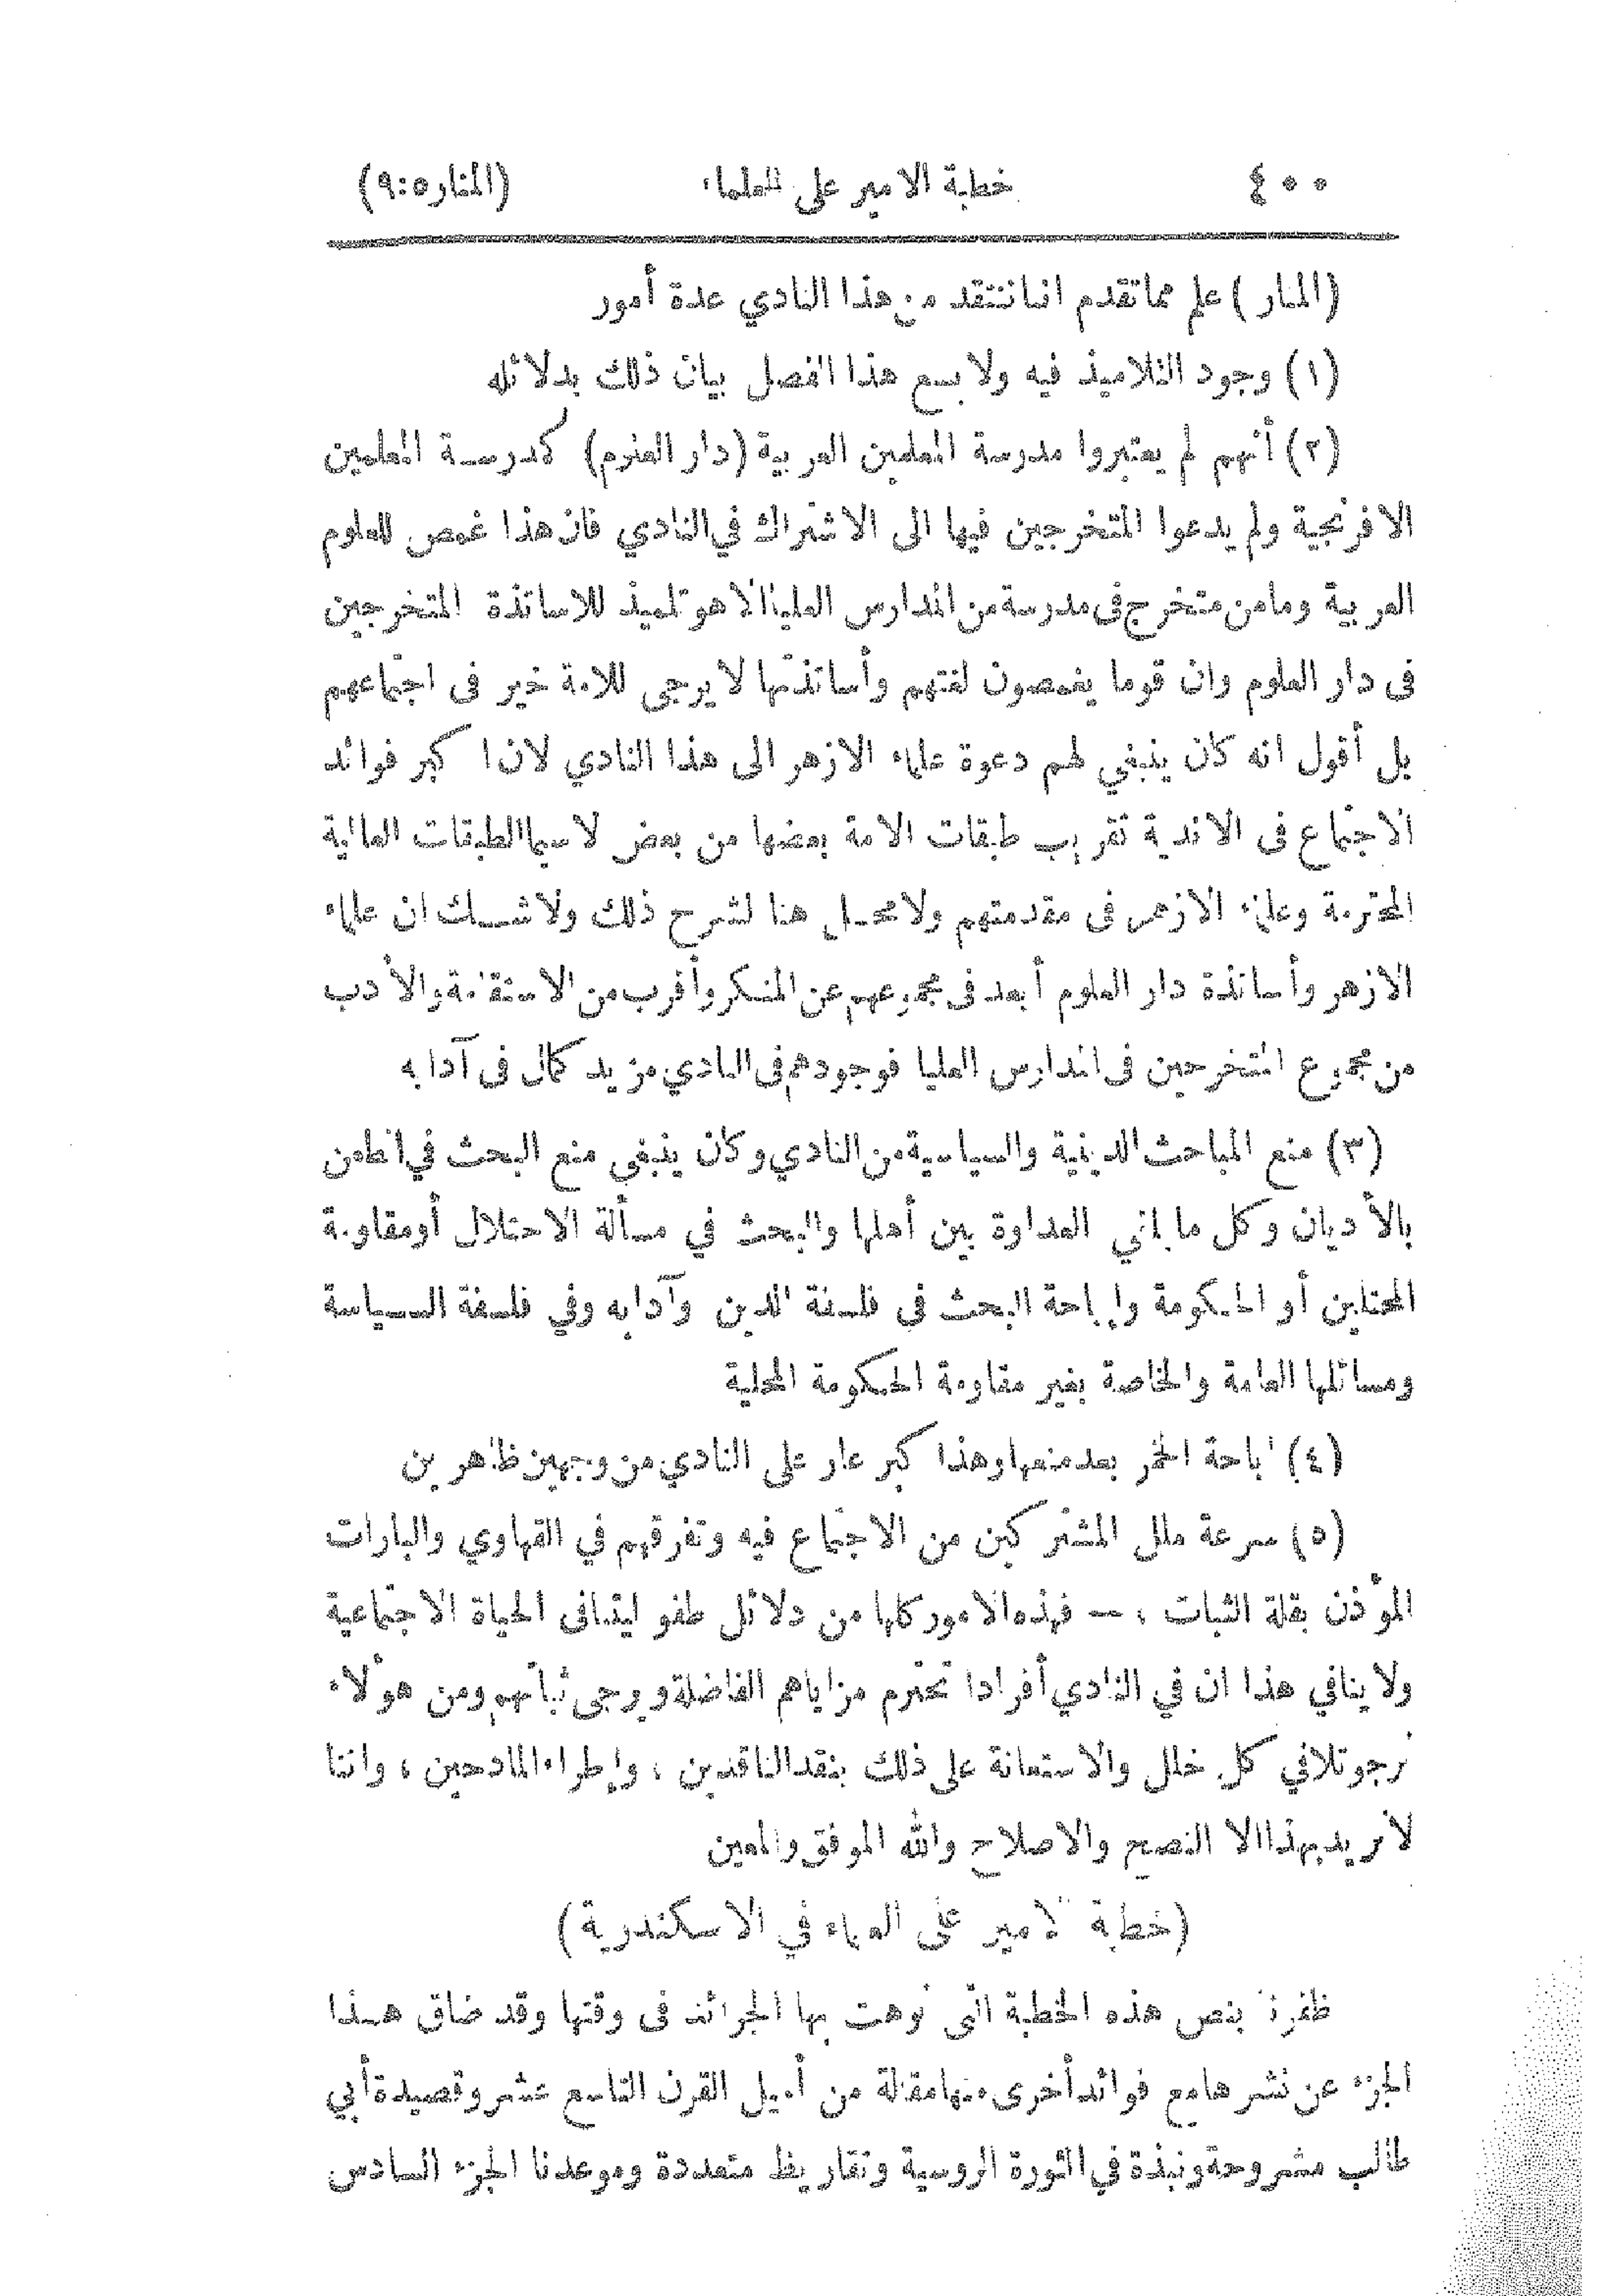 ٤٠٠ خطبة الامير على العلماء (المنار ٥: ٩)
(المنار) علم مما تقدم اننا ننتقد من هذا النادي عدة أمور
(١) وجود التلاميذ فيه ولا يسع هذا الفصل بيان ذلك بدلائله
(٢) أنهم لم يعتبروا مدرسة المعلمين العربية (دار العلوم) كمدرسة المعلمين
الافرنجية ولم يدعوا المتخرجين فيها الى الاشتراك في النادي فان هذا غمص للعلوم
العربية وما من متخرج في مدرسة من المدارس العليا الا هو تلميذ للاساتذة المتخرجين
في دار العلوم وان قوما يغمصون لغتهم وأساتذتها لا يرجى للامة خير في اجتماعهم
بل أقول انه كان ينبغي لهم دعوة علماء الازهر الى هذا النادي لان اكبر فوائد
الاجتماع في الاندية تقريب طبقات الامة بعضها من بعض لا سيما الطبقات العالية
المحترمة وعلماء الازهر في مقدمتهم ولا محل هنا لشرح ذلك ولا شك ان علماء
الازهر وأساتذة دار العلوم أبعد في مجموعهم عن المنكر وأقرب من الاستقامة والأدب
من مجموع المتخرجين في المدارس العليا فوجودهم في النادي مزيد كمال في آدابه
(٣) منع المباحث الدينية والسياسية من النادي وكان ينبغي منع البحث في الطعن
بالأديان وكل ما يلقي العداوة بين أهلها والبحث في مسألة الاحتلال أو مقاومة
المحتلين أو الحكومة وإباحة البحث في فلسفة الدين وآدابه وفي فلسفة السياسة
ومسائلها العامة والخاصة بغير مقاومة الحكومة المحلية
(٤) اباحة الخمر بعد منعها وهذا اكبر عار على النادي من وجهين ظاهرين
(٥) سرعة ملل المشتركين من الاجتماع فيه وتفرقهم في القهاوي والبارات
المؤذن بقلة الثبات ، — فهذه الامور كلها من دلائل طفوليتنا في الحياة الاجتماعية
ولا ينافي هذا ان في النادي أفرادا تحترم مزاياهم الفاضلة ويرجى ثباتهم ومن هؤلاء
نرجو تلافي كل خلل والاستعانة على ذلك بنقد الناقدين ، وإطراء المادحين ، واننا
لا نريد بهذا الا النصح والاصلاح والله الموفق والمعين
(خطبة الامير على العلماء في الاسكندرية)
ظفرنا بنص هذه الخطبة التي نوهت بها الجرائد في وقتها وقد ضاق هذا
الجزء عن نشرها مع فوائد أخرى منها مقالة من أميل القرن التاسع عشر وقصيدة أبي
طالب مشروحة ونبذة في الثورة الروسية وتقاريظ متعددة وموعدنا الجزء السادس